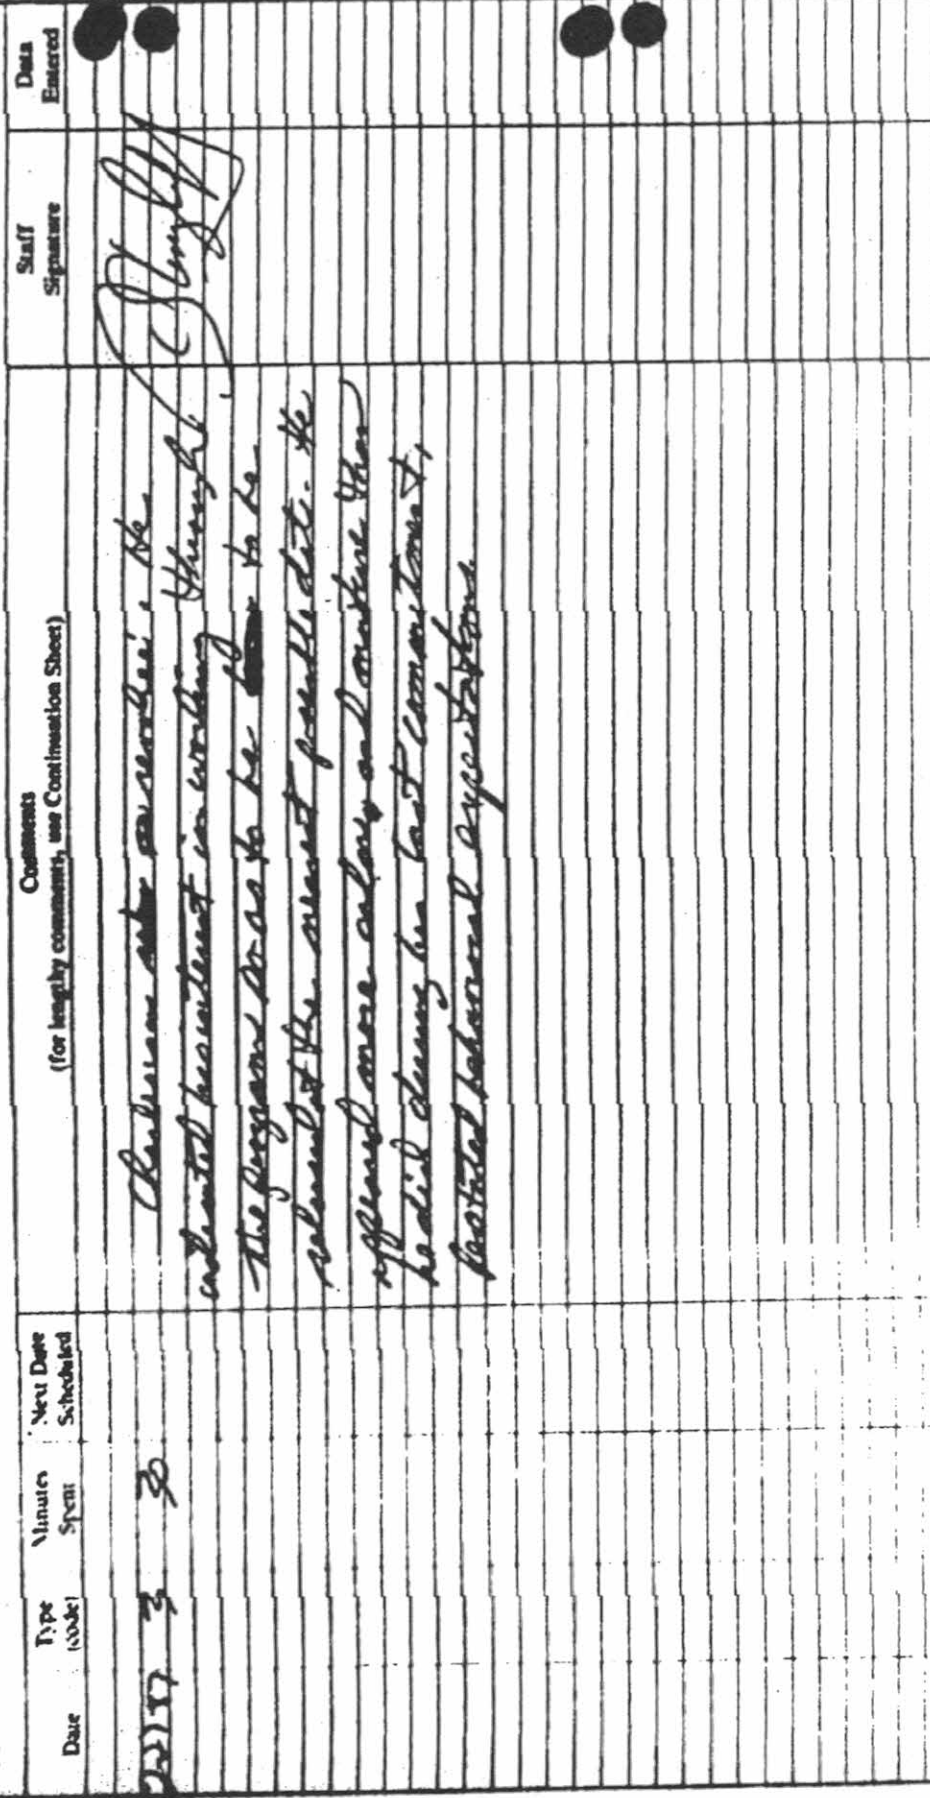 Date
Type
(code)
Minutes
Spent
Next Date
Scheduled
Comments
(for lengthy comments, use Continuation Sheet)
Staff
Signature
Data
Entered
3 30
. He
interest in working through
the program so as to be to be
released at the nearest possible date. He
appeared more and mature than
he did during his last commitment,
behavioral expectations.